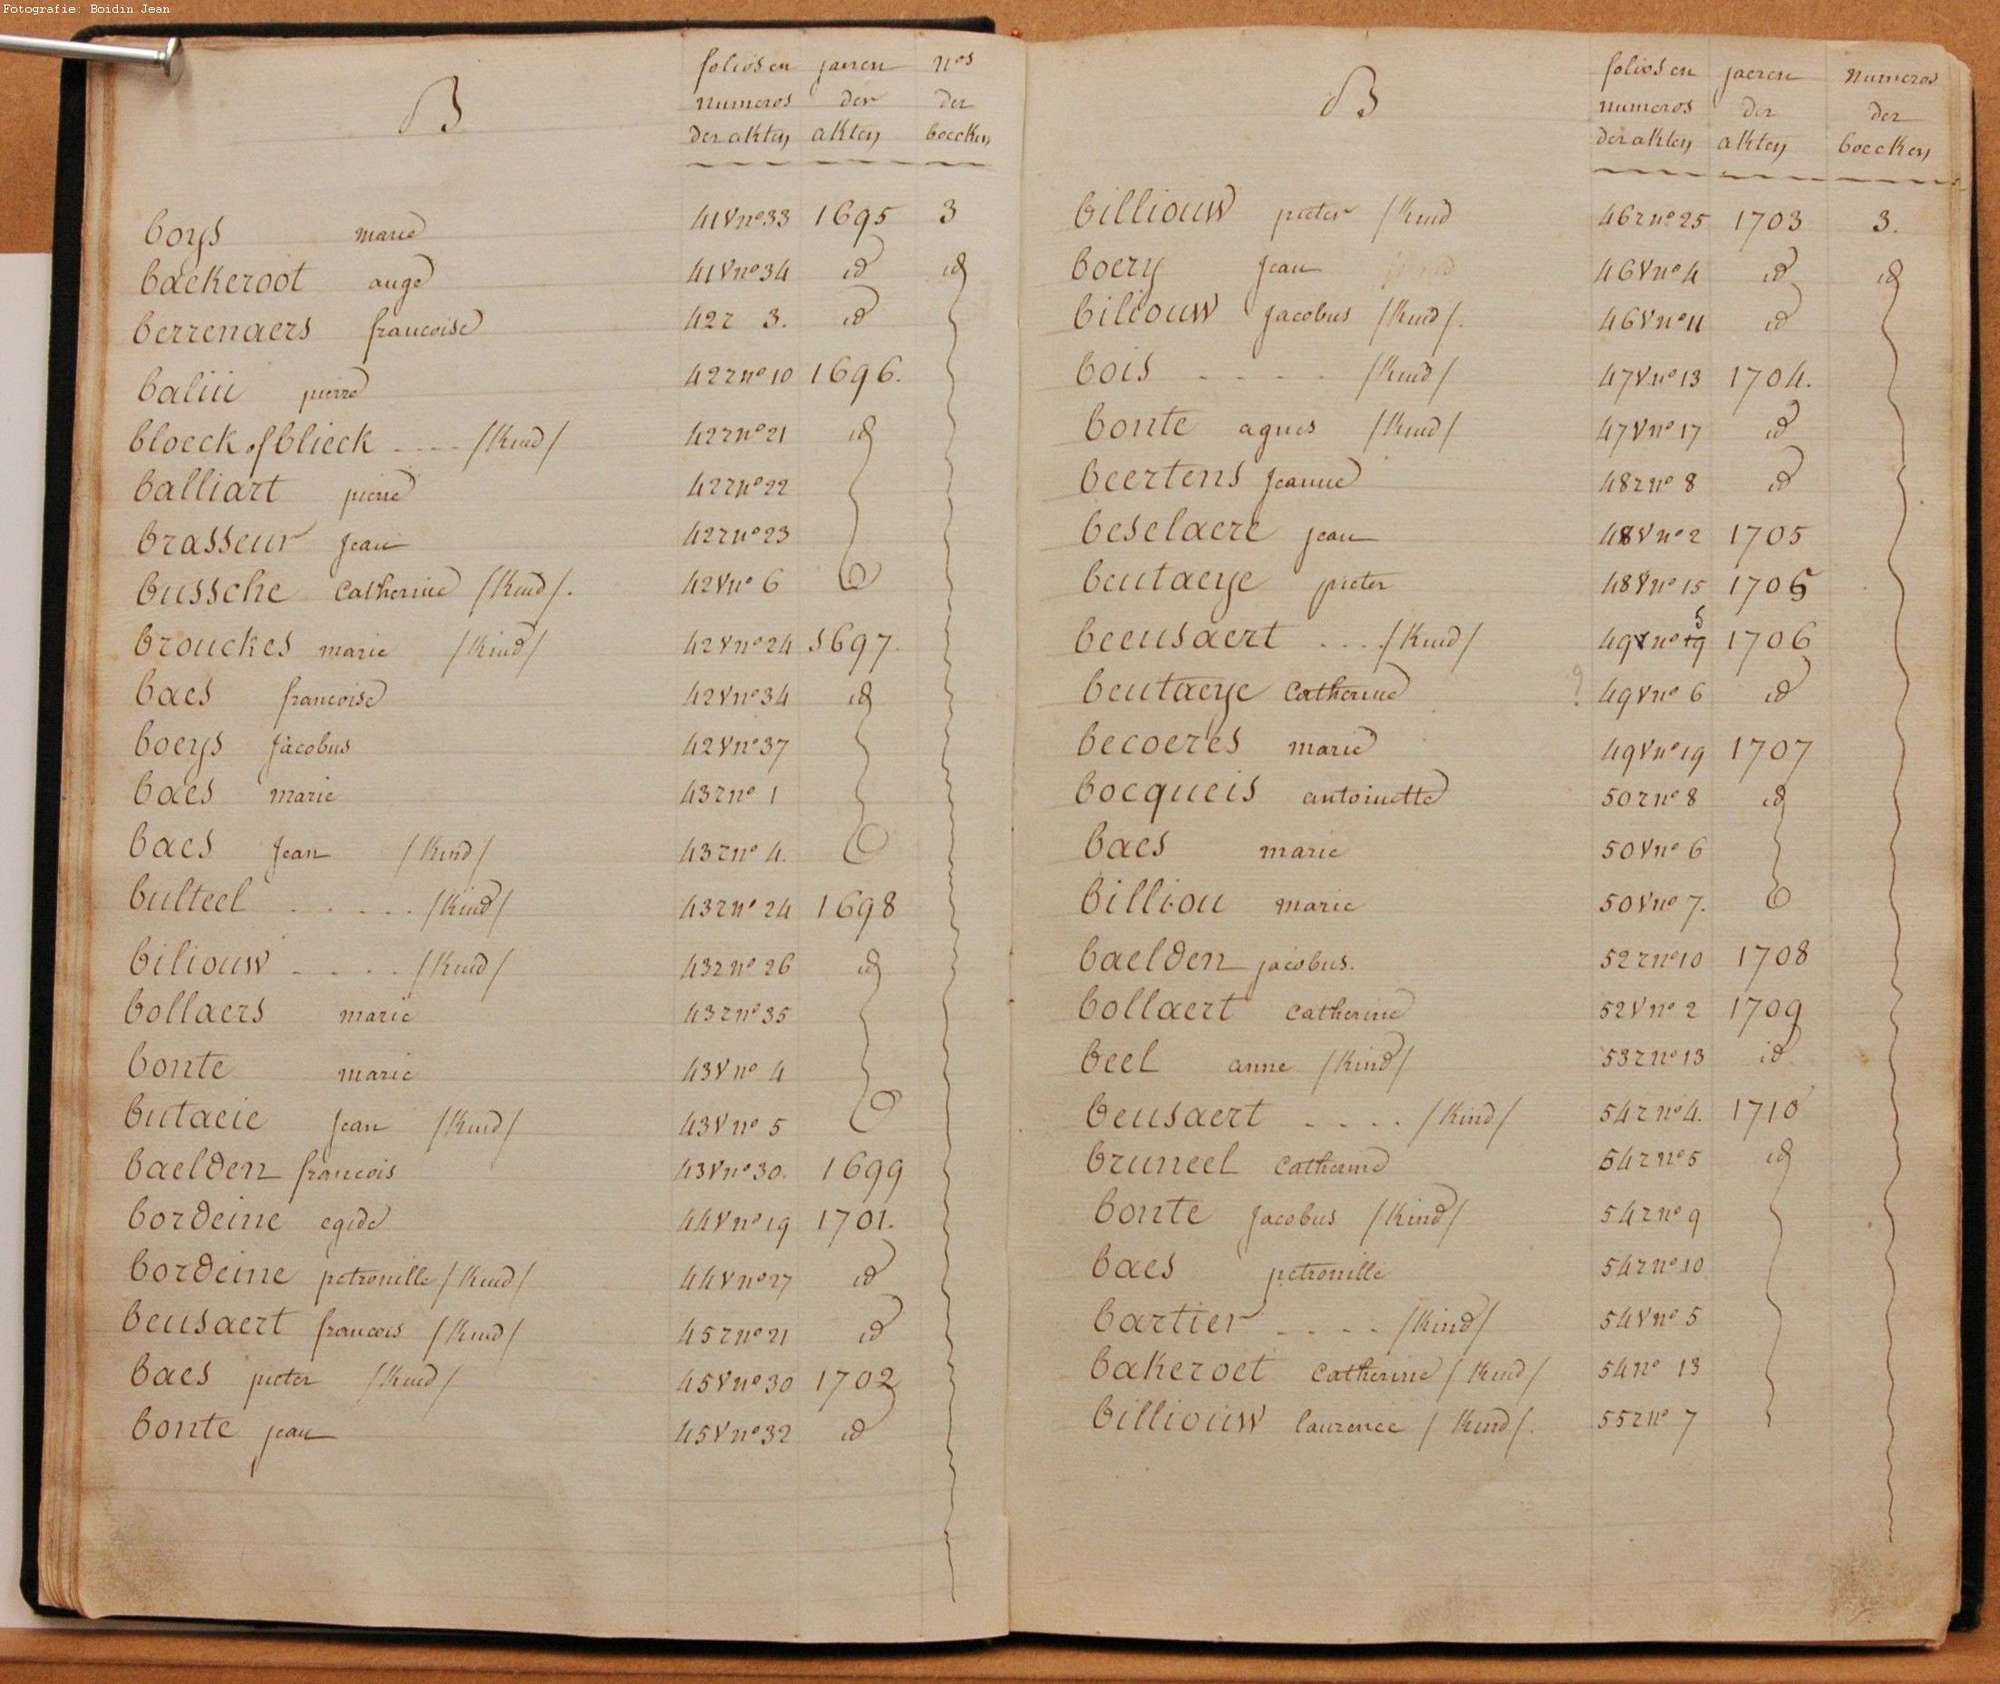 Fotografie: Boidin Jean
B
folios en jaeren nos
numeros der der
der akten akten boecken
boys marie 41V no 33 1695 3
backeroot ange 41V no 34 id id
berrenaers francoise 42r 3. id
baliu pierre 42r no 10 1696.
bloeck of blieck .... /Kind/ 42r no 21 id
balliart pierre 42r no 22
brasseur jean 42r no 23
bussche catherine /Kind/. 42V no 6
brouckes marie /Kind/ 42V no 24 1697.
baes francoise 42V no 34 id
boeys jacobus 42V no 37
baes marie 43r no 1
baes jean /Kind/ 43r no 4.
bulteel ..... /Kind/ 43r no 24 1698
biliouw .... /Kind/ 43r no 26 id
bollaers marie 43r no 35
bonte marie 43V no 4
butaeie jean /Kind/ 43V no 5
baelden francois 43V no 30. 1699
bordeine egide 44V no 19 1701.
bordeine petronille /Kind/ 44V no 27 id
beusaert francois /Kind/ 45r no 21 id
baes pieter /Kind/ 45V no 30 1702
bonte jean 45V no 32 id
B
folios en jaeren numeros
numeros der der
der akten akten boecken
billiouw pieter /Kind 46r no 25 1703 3.
boery jean 46V no 4 id id
biliouw jacobus /Kind/. 46V no 11 id
bois ..... /Kind/ 47V no 13 1704.
bonte agnes /Kind/ 47V no 17 id
beertens jeanne 48r no 8 id
beselaere jean 48V no 2 1705
beutaeye pieter 48V no 15 1706
beeusaert .... /Kind/ 49r no 19 5 1706
beutaeye catherine ? 49V no 6 id
becoeres marie 49V no 19 1707
bocqueis antoinette 50r no 8 id
baes marie 50V no 6
billiou marie 50V no 7.
baelden jacobus. 52r no 10 1708
bollaert catherine 52V no 2 1709
beel anne /Kind/ 53r no 13 id.
beusaert .... /Kind/ 54r no 4. 1710
bruneel catherine 54r no 5 id
bonte jacobus /Kind/ 54r no 9
baes petronille 54r no 10
bartier .... /Kind/ 54V no 5
bakeroet catherine /Kind/ 54 no 13
billiouw laurence /Kind/. 55r no 7